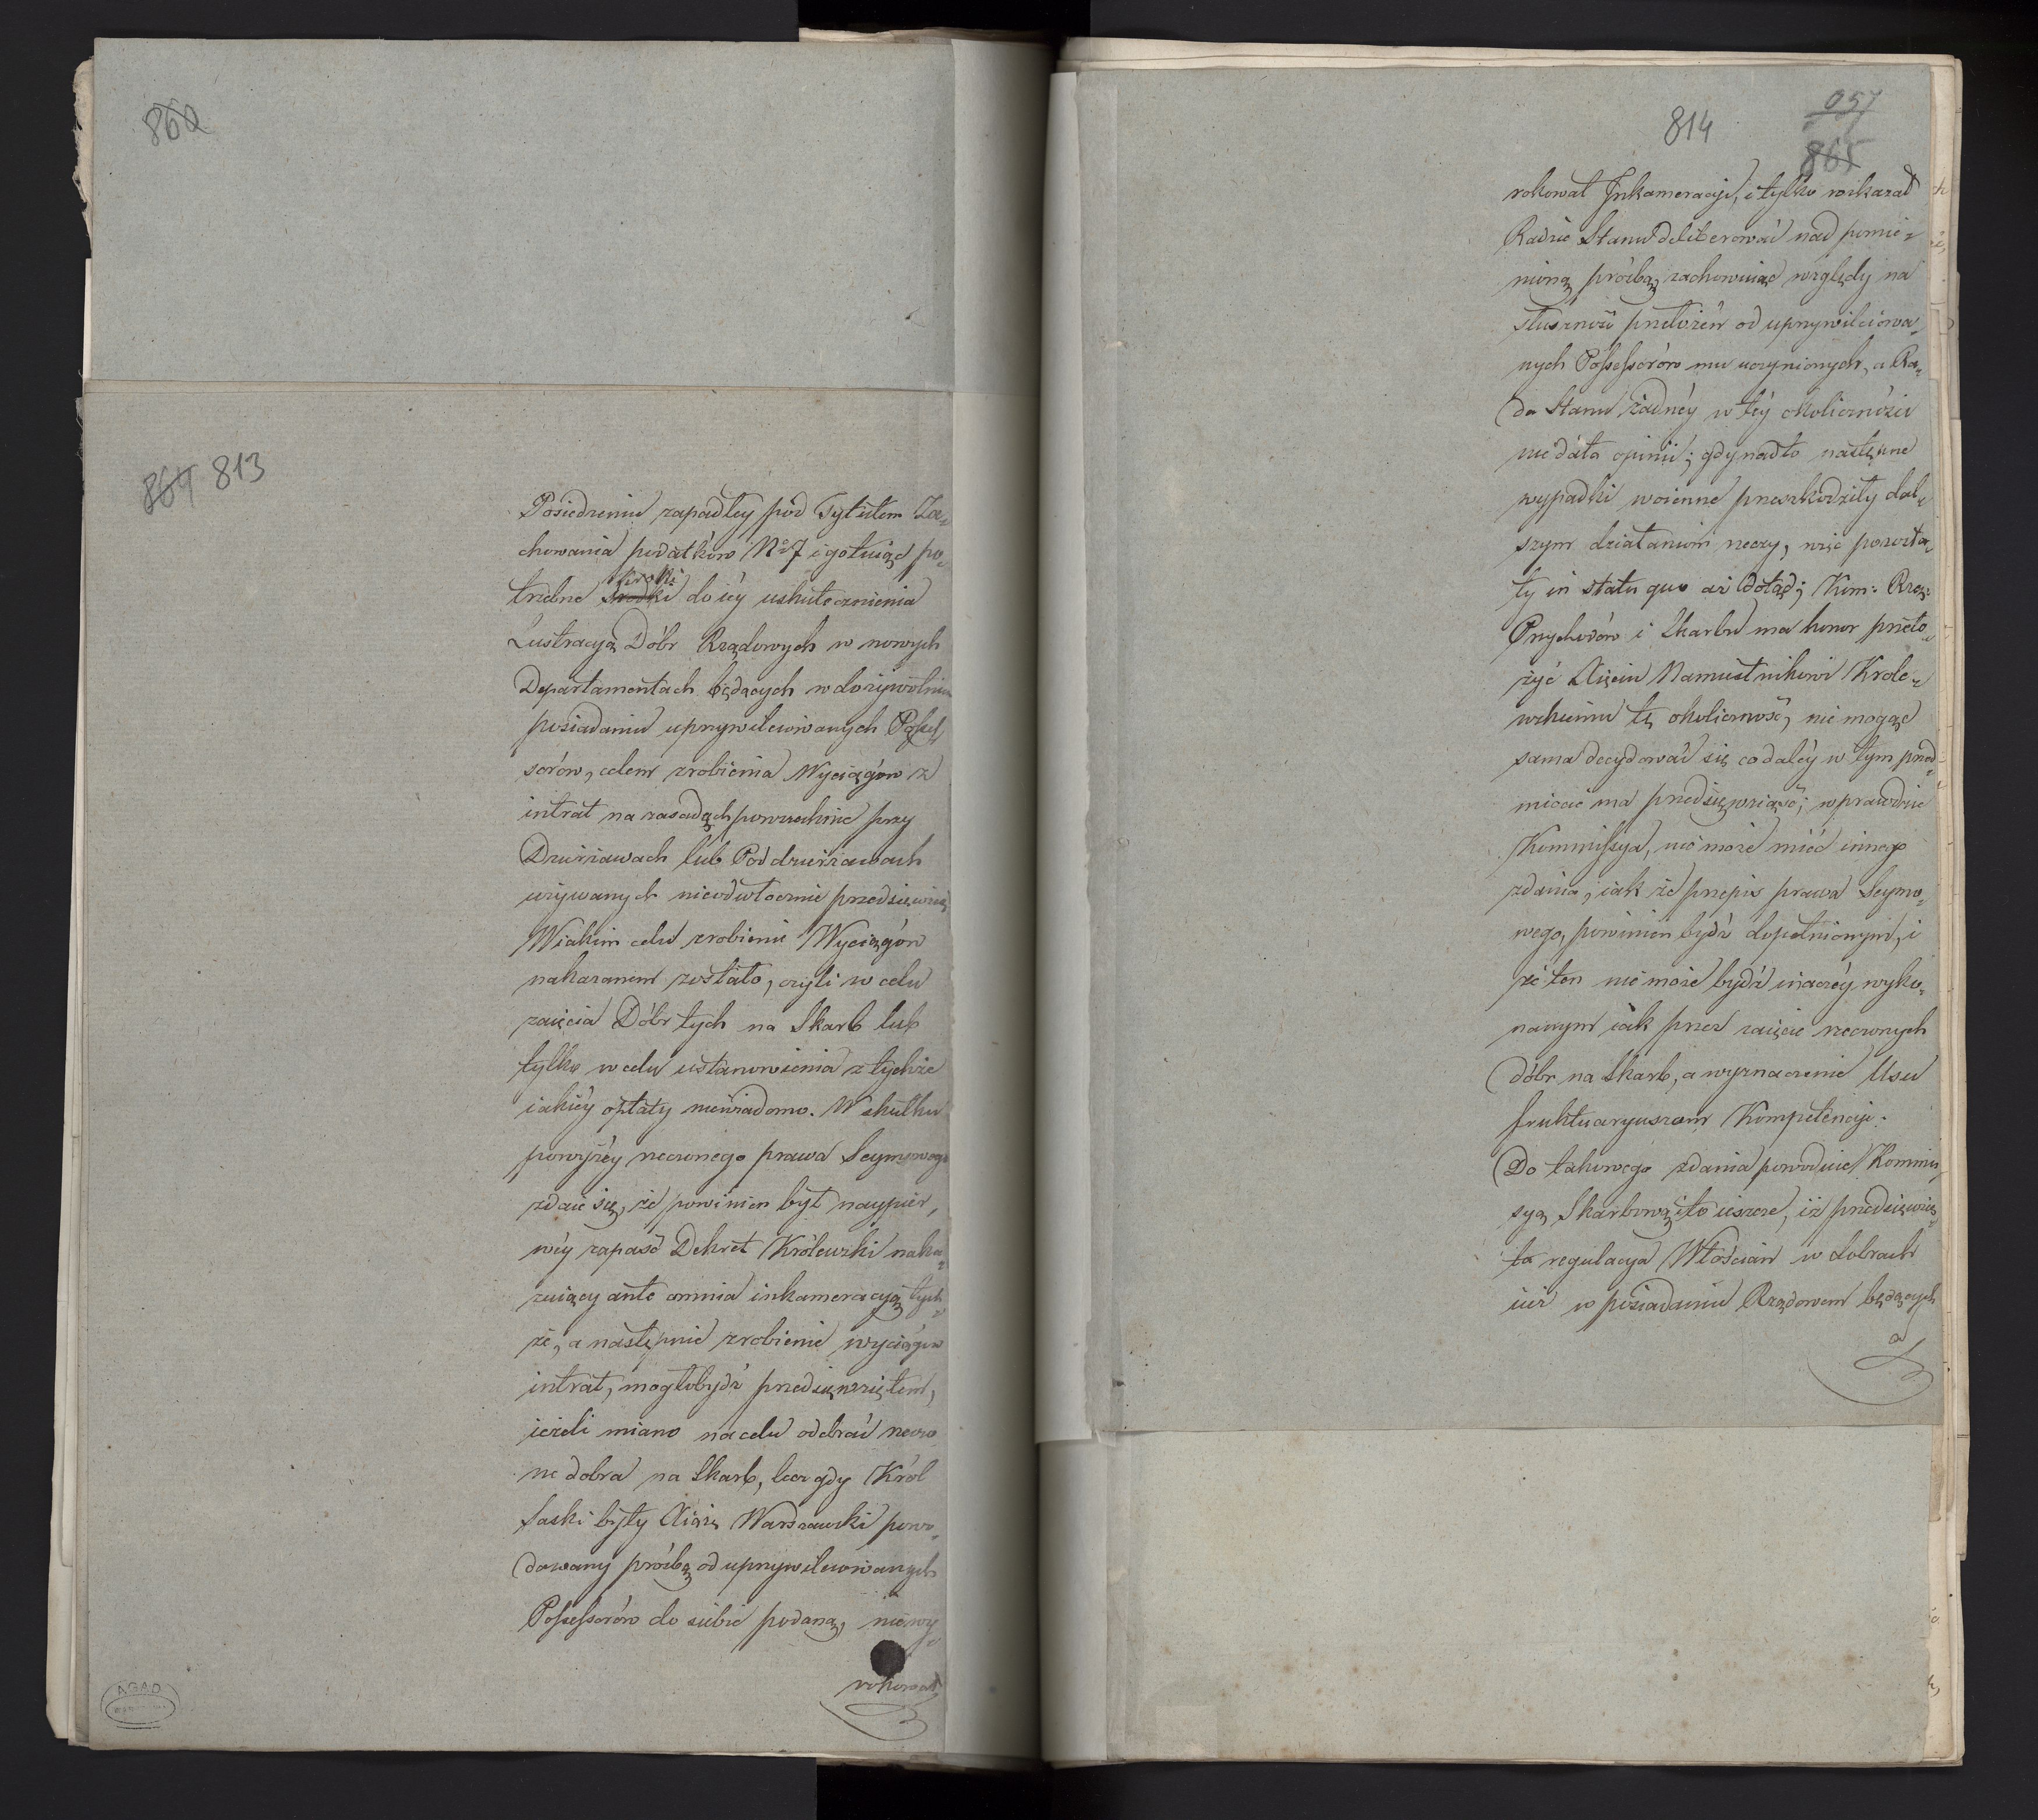 860
864 813
Posiedzeniu zapadłey pod Tytułem Za„
chowania podatków No 7 i gotuiąc po„
trzebne kroki do iéy uskutecznienia
Lustracyą Dóbr Rządowych w nowych
Departamentach będących w dożywotnim
posiadaniu uprzywileiowanych Posses„
sorów, celem zrobienia Wyciągów z
intrat na zasadach powszechnie przy
Dzierżawach lub Poddzierżawach
używanych nieodwłocznie przedsięwziąć
W iakim celu zrobienie Wyciągów
nakazanem zostało, czyli w celu
zaięcia Dóbr tych na Skarb lub
tylko w celu ustanowienia z tychże
iakiéy opłaty niewiadomo. W skutku
powyżéy rzeczonego prawa Seymowego
zdaie się, że powinien był naypier„
wéy zapaść Dekret Królewski naka„
zuiący ante omnia inkameracyą tych„
że, a następnie zrobienie wyciągów
intrat, mogłobydź przedsięwziętem,
ieżeli miano na celu odebrać rzeczo„
ne dobra na Skarb, lecz gdy Król
Saski były Xiąże Warszawski powo„
dowany prośbą od uprzywileiowanych
Possessorów do siebie podaną, niewy„
rokował
AGAD
814
057
865
rokował Inkameracyi, i tylko wskazał
Radzie Stanu deliberować nad pomie„
nioną prośbą, zachowuiąc względy na
słuszność przełożeń od uprzywileiowa„
nych Possessorów mu uczynionych, a Ra„
da Stanu żadnéy w téy okoliczności
nie dała opinii; gdy nadto następne
wypadki woienne przeszkodziły dal„
szym działaniom rzeczy, więc pozosta„
ły in statu quo aż dotąd; Kom: Rzą:
Przychodów i Skarbu ma honor przeło„
żyć Xięciu Namiestnikowi Króle„
wskiemu tę okoliczność, nie mogąc
sama decydować się co daléy w tym przed„
miocie ma przedsięwziąść; wprawdzie
Kommissya, nie może mieć innego
zdania, iak że przepis prawa Seymo„
wego, powinien bydź dopełnionym, i
że ten nie może bydź inaczéy wyko„
nanym iak przez zaięcie rzeczonych
dóbr na Skarb, a wyznaczenie Usu
fruktuaryuszom Kompetencyi.
Do takowego zdania powoduie Kommis„
syą Skarbową i to ieszcze, iż przedsięwzię„
ta regulacya Włościan w dobrach
iuż w posiadaniu Rządowem będących